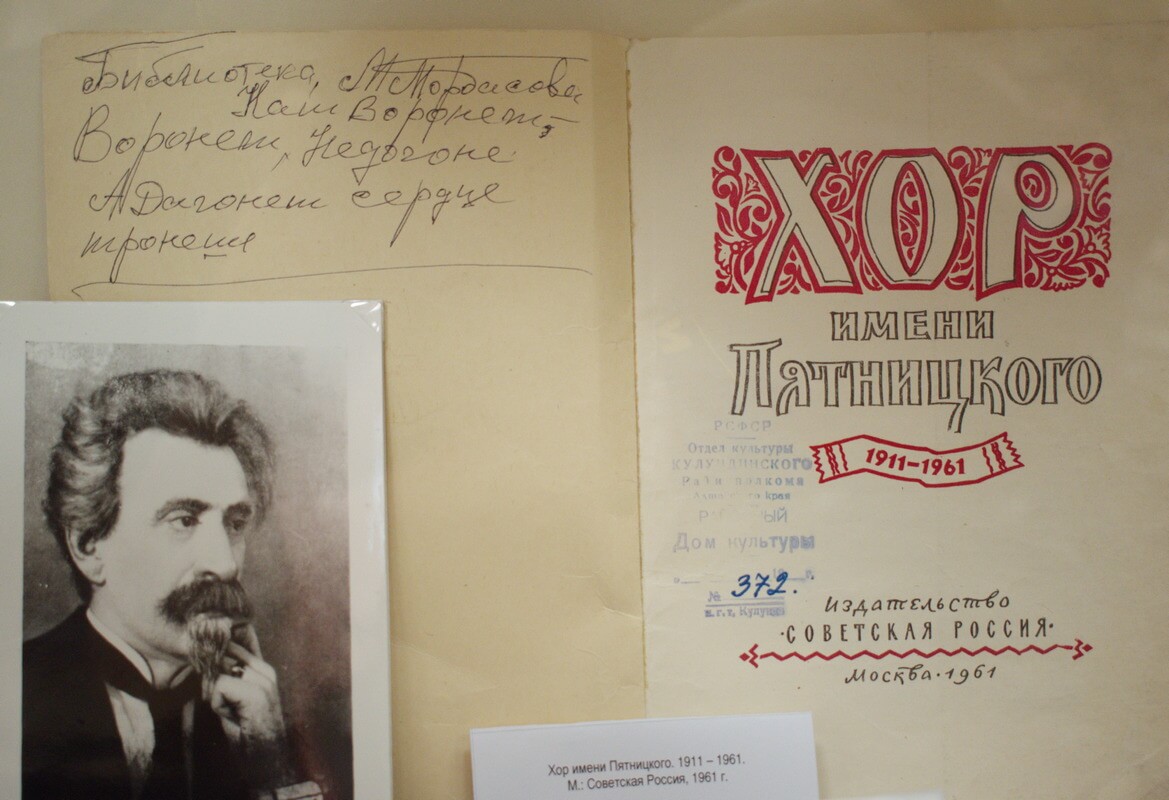 Библиотека, М Мордасова
Наш Воронеж,
Воронеж, Недогоне
А Дагонеш сердце
тронеш
ХОР
ИМЕНИ
ПЯТНИЦКОГО
1911–1961
РСФСР
Отдел культуры
КУЛУНДИНСКОГО
края
Дом культуры
№ 372.
Издательство
·СОВЕТСКАЯ РОССИЯ·
Москва·1961
Хор имени Пятницкого. 1911 – 1961.
М.: Советская Россия, 1961 г.